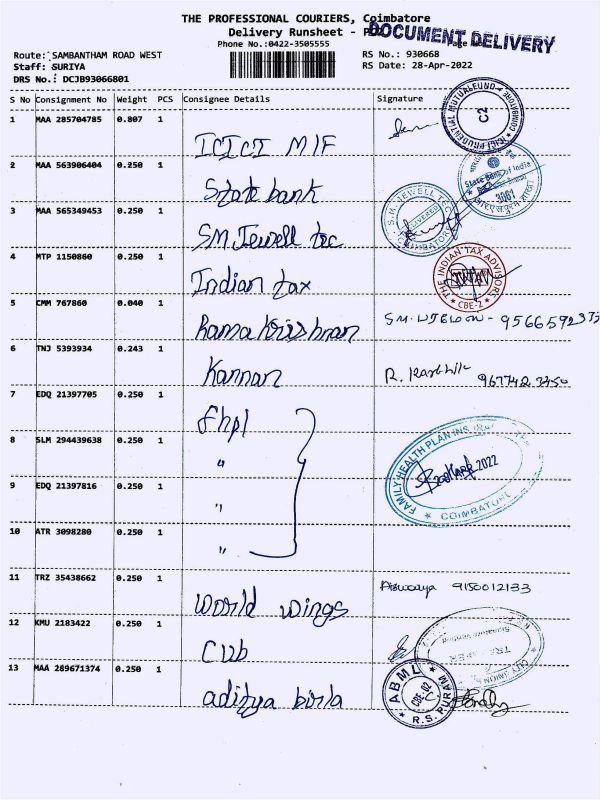 THE PROFESSIONAL COURIERS, Coimbatore
Delivery Runsheet -
DOCUMENT DELIVERY
Phone No.:0422-3505555
Route: SAMBANTHAM ROAD WEST
RS No.: 930668
Staff: SURIYA
RS Date: 28-Apr-2022
DRS No.: DCJB93066801
S No Consignment No Weight PCS Consignee Details Signature
1 MAA 285704785 0.807 1 ICICI M/F
PRUDENTIAL MUTUAL FUND C2 COIMBATORE ICICI
2 MAA 563906404 0.250 1 State bank
State Bank of India 3061
3 MAA 565349453 0.250 1 SM Jewell tec
S.M. JEWELL TEC DELIVERED COIMBATORE
4 MTP 1150860 0.250 1 Indian tax
THE INDIAN TAX ADVISORS CBE-2
5 CMM 767860 0.040 1 Rama Krishnan
6 TNJ 5393934 0.243 1 Kannan R. Karthik
7 EDQ 21397705 0.250 1 fhpl
8 SLM 294439638 0.250 1 "
FAMILY HEALTH PLAN INS 2022 COIMBATORE
9 EDQ 21397816 0.250 1 "
10 ATR 3098280 0.250 1 "
11 TRZ 35438662 0.250 1 World wings 9150012133
12 KMU 2183422 0.250 1 CUB
13 MAA 289671374 0.250 1 aditya birla
ABML CBE-02 R.S. PURAM